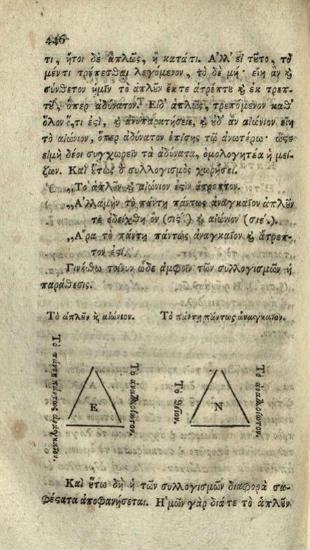 446
τι, ἤτοι δὲ ἁπλῶς, ἢ κατάτι. Ἀλλ' εἰ τῦτο, τῦ
μέντι τρέπεσθαι λεγόμενον, τὸ δὲ μή· εἴη ἂν ȣ
σύνθετον ἡμῖν τὸ ἁπλῦν ἔκτε ἀτρέπτȣ ȣ ἐκ τρεπ-
τȣ, ὅπερ ἀδύνατον. Εἰδ' ἁπλῶς, τρεπόμενον καθ'
ὅλον ὅ,τι ἐςὶ, ȣ ἀνυπαρκτήσει, ȣ ȣδ' ἂν αἰώνιον εἴη
τὸ αἰώνιον, ὅπερ ἀδύνατον ἐπίσης τῷ ἀνωτέρω· ὥςε
εἰμὴ δέοι συγχωρεῖν τὰ ἀδύνατα, ὁμολογητέα ἡ μεί-
ζων. Καὶ ȣτως ὁ συλλογισμὸς χωρήσει.
„Τὸ ἁπλῦν ȣ αἰώνιον ἐςὶν ἄτρεπτον.
„Ἀλλαμὴν τὸ πάντη πάντως ἀναγκαῖον ἁπλῦν
τε ἐδείχθη ὂν (σις΄.) ȣ αἰώνιον (σιε΄.).
„Ἄρα τὸ πάντη πάντως ἀναγκαῖον ȣ ἄτρεπ-
τον ἐςί.
Γινέσθω τοίνυν ὧδε ἀμφοῖν τῶν συλλογισμῶν ἡ
παράθεσις.
Τὸ ἁπλῦν ȣ αἰώνιον.
Τὸ πάντη πάντως ἀναγκαῖον.
Τὸ πάντη πάντως ἀναγκαῖον.
Ε
Τὸ ἀναλλοίωτον.
Τὸ Θεῖον.
Ν
Τὸ ἀναλλοίωτον.
Καὶ ȣτω δὴ ἡ τῶν συλλογισμῶν διαφορὰ σα-
φέςατα ἀποφανήσεται. Ἡ μὲν γὰρ διάτε τὸ ἁπλῦν